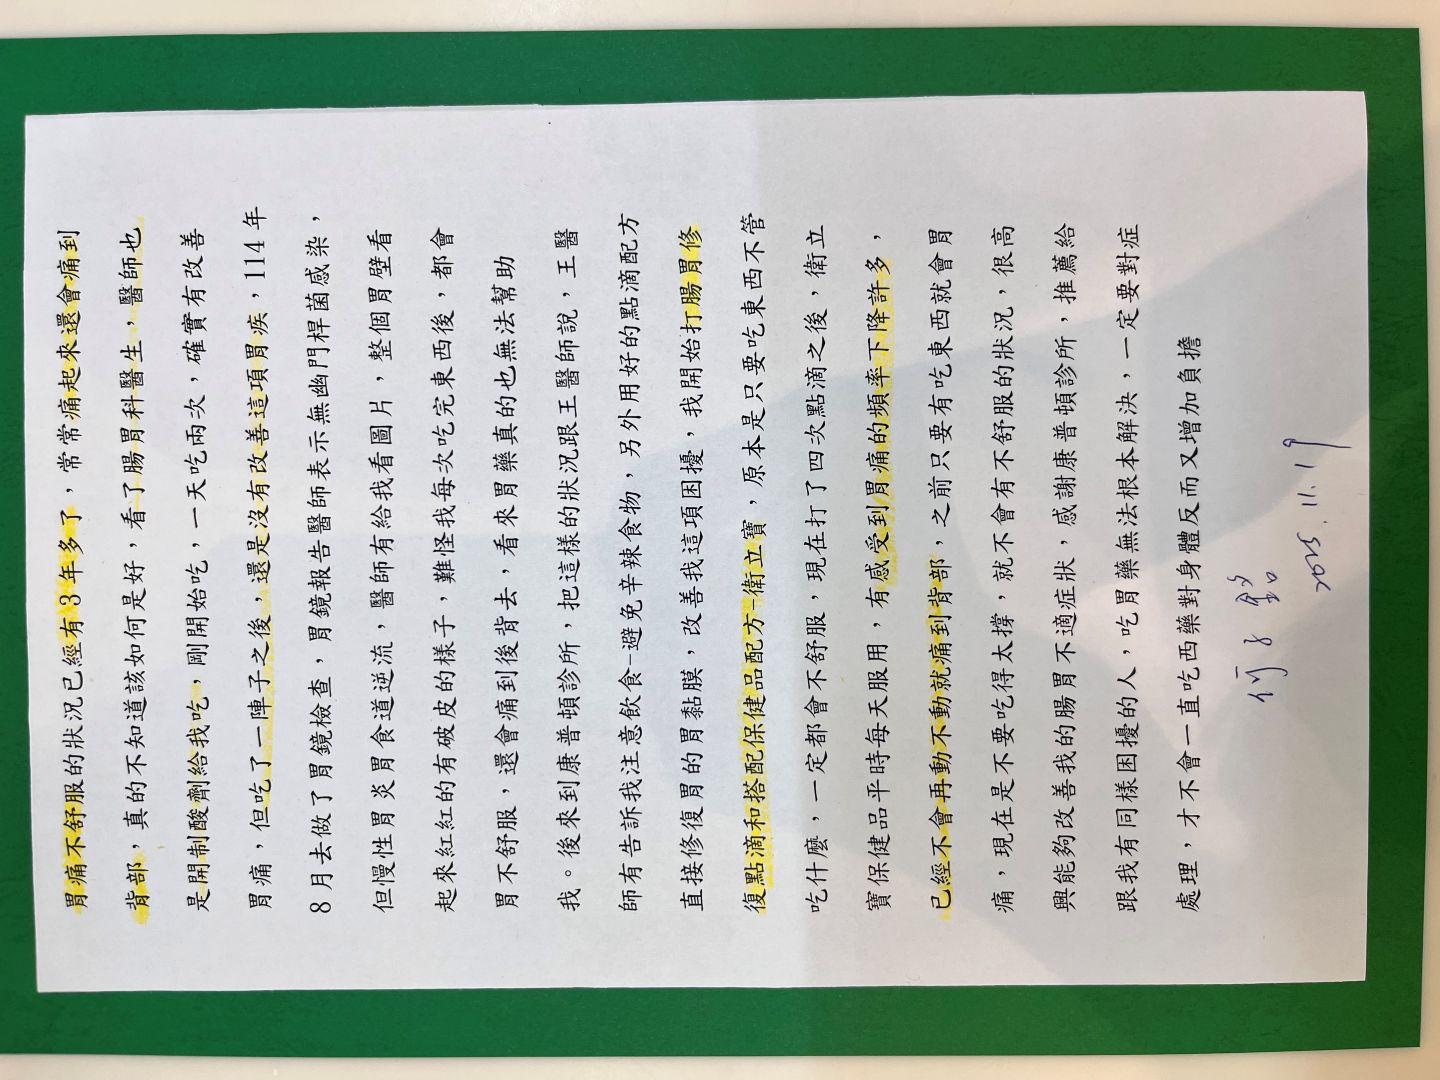 胃痛不舒服的狀況已經有3年多了，常常痛起來還會痛到
背部，真的不知道該如何是好，看了腸胃科醫生，醫師也
是開制酸劑給我吃，剛開始吃，一天吃兩次，確實有改善
胃痛，但吃了一陣子之後，還是沒有改善這項胃疾，114年
8月去做了胃鏡檢查，胃鏡報告醫師表示無幽門桿菌感染，
但慢性胃炎胃食道逆流，醫師有給我看圖片，整個胃壁看
起來紅紅的有破皮的樣子，難怪我每次吃完東西後，都會
胃不舒服，還會痛到後背去，看來胃藥真的也無法幫助
我。後來到康普頓診所，把這樣的狀況跟王醫師說，王醫
師有告訴我注意飲食-避免辛辣食物，另外用好的點滴配方
直接修復胃的胃黏膜，改善我這項困擾，我開始打腸胃修
復點滴和搭配保健品配方-衛立寶，原本是只要吃東西不管
吃什麼，一定都會不舒服，現在打了四次點滴之後，衛立
寶保健品平時每天服用，有感受到胃痛的頻率下降許多，
已經不會再動不動就痛到背部，之前只要有吃東西就會胃
痛，現在是不要吃得太撐，就不會有不舒服的狀況，很高
興能夠改善我的腸胃不適症狀，感謝康普頓診所，推薦給
跟我有同樣困擾的人，吃胃藥無法根本解決，一定要對症
處理，才不會一直吃西藥對身體反而又增加負擔
2025.11.19